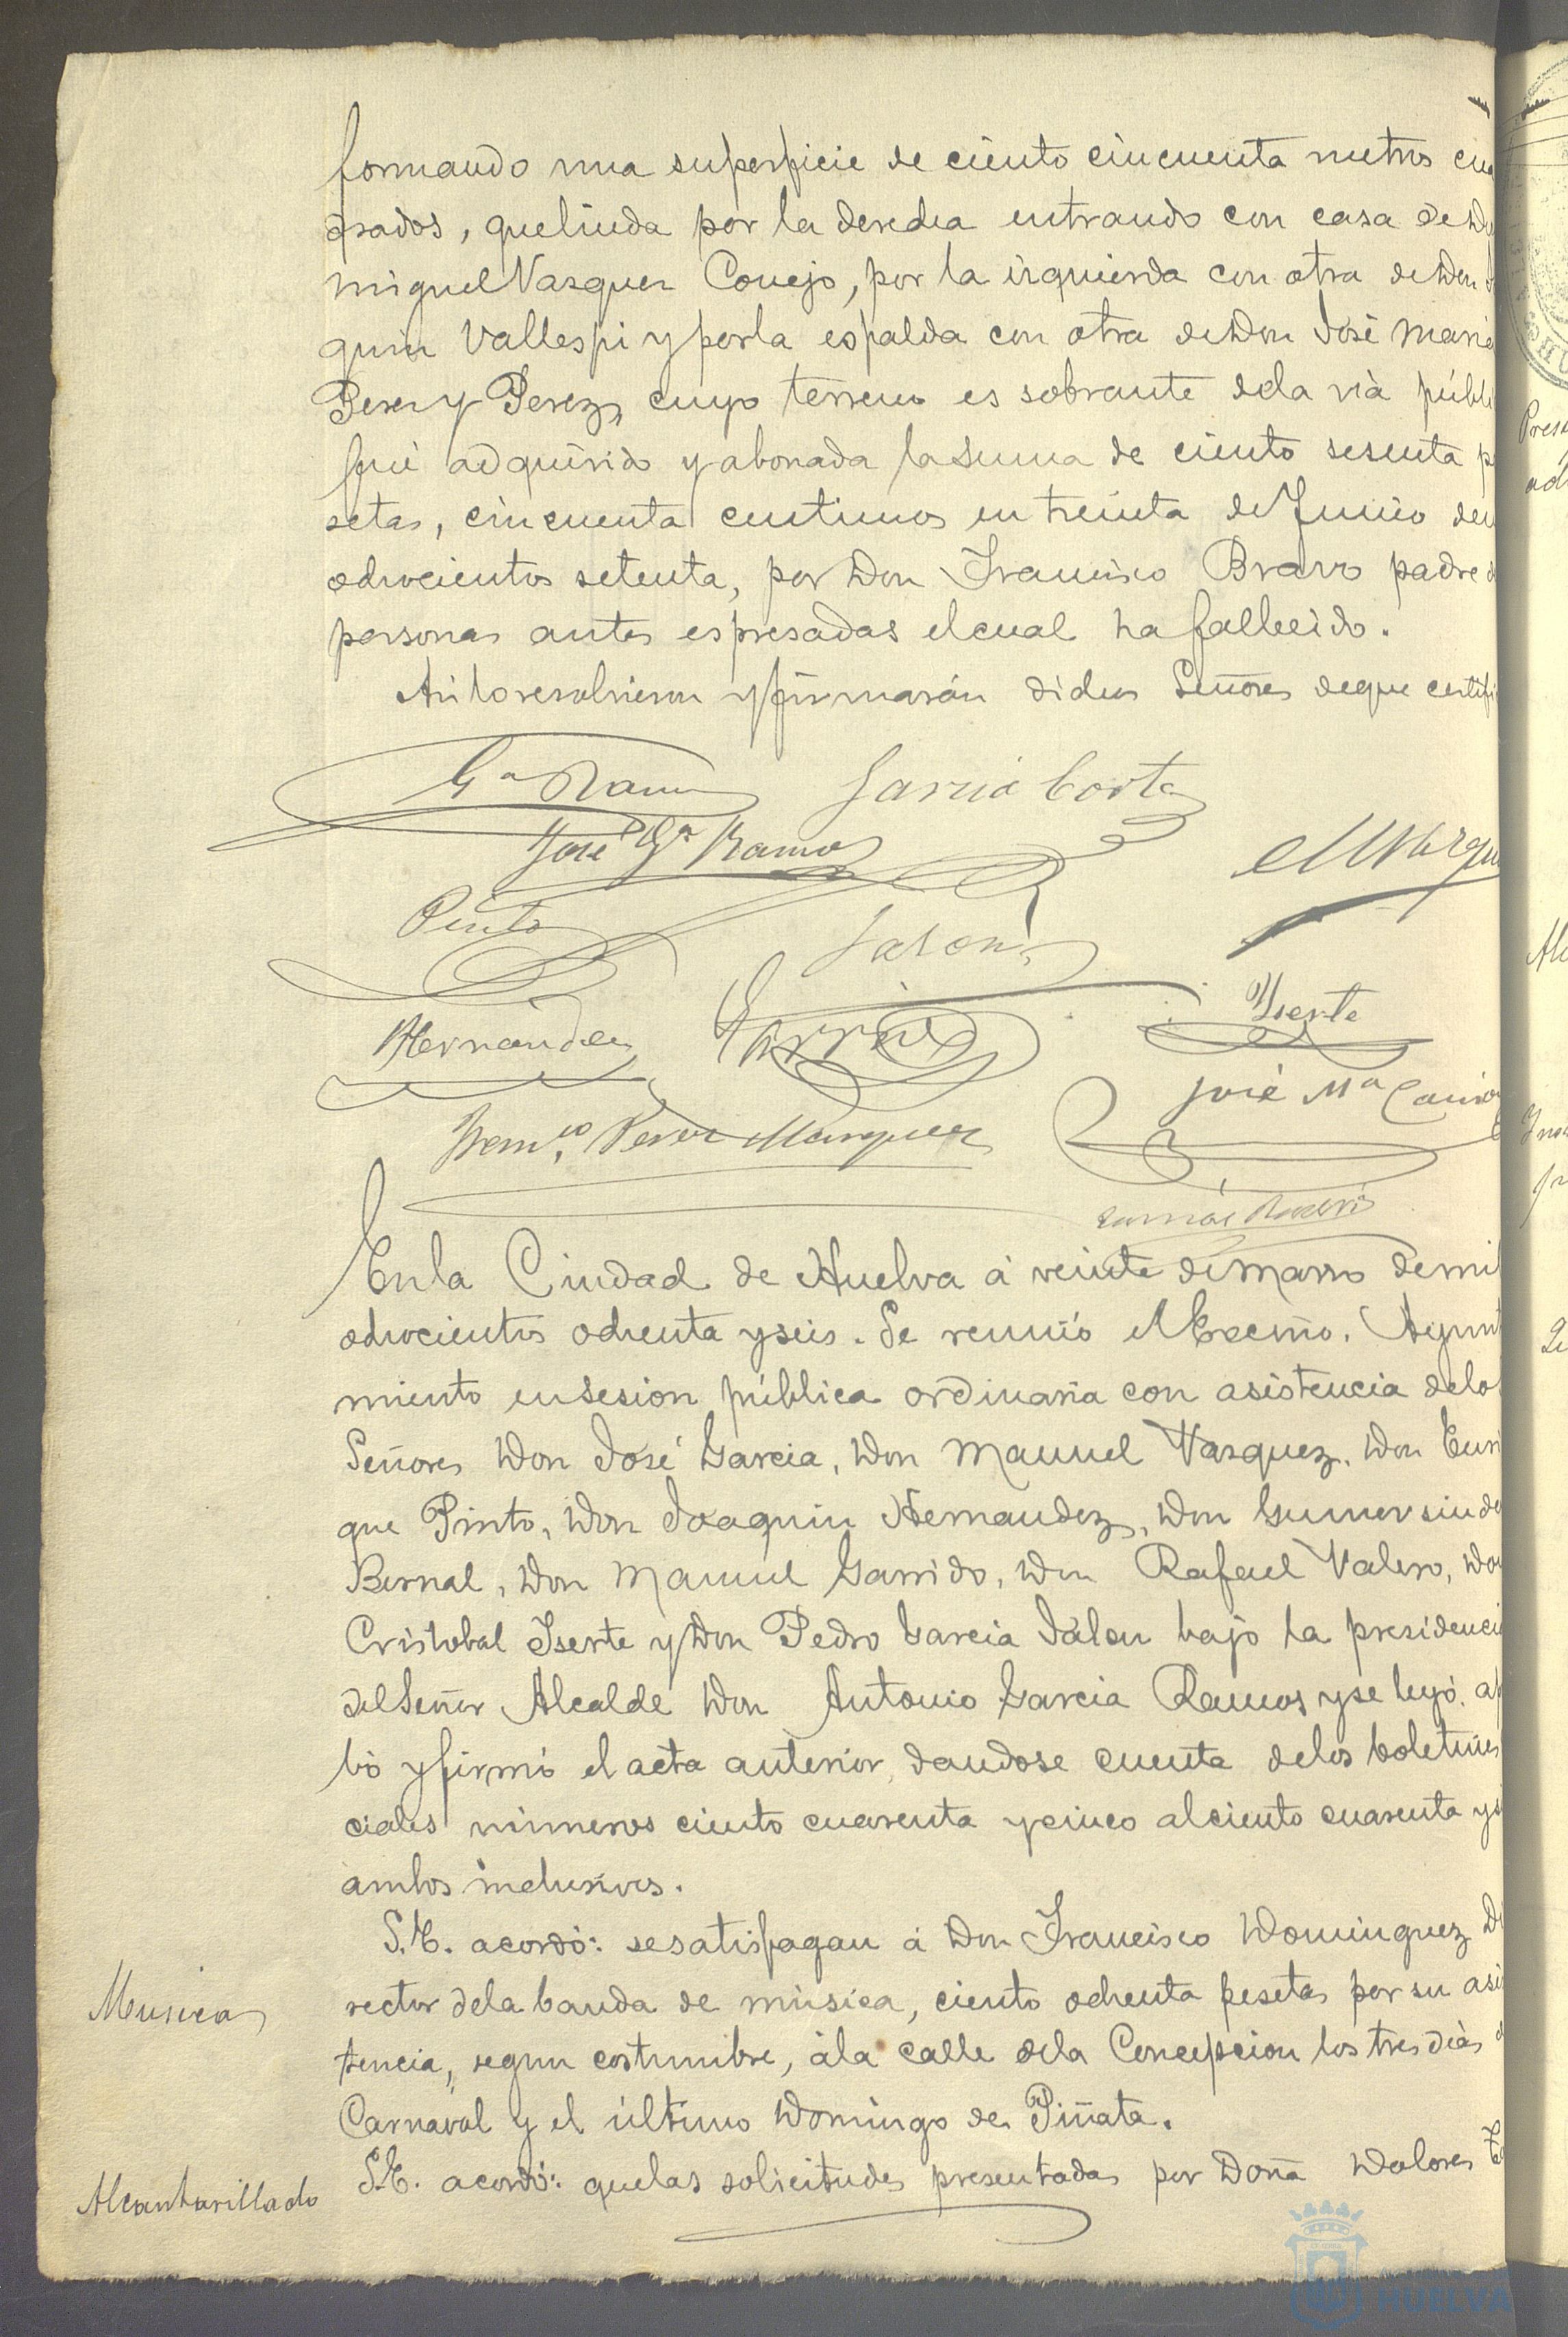 formando una superficie de ciento cincuenta metros cua
drados, que linda por la derecha entrando con casa de D
Miguel Vazquez Conejo, por la izquierda con otra de Don
quin Vallespi y por la espalda con otra de Don José Maria
Perez y Perez, cuyo terreno es sobrante de la via públi
fué adquirido y abonada la suma de ciento sesenta pe
setas, cincuenta centimos en treinta de Junio de
ochocientos setenta, por Don Francisco Bravo padre d
personas antes espresadas el cual ha fallecido.
Asi lo resolvieron y firmarán dichos Señores de que certifi
Gª Ramos
Garcia Cortes
José Gª Ramos
M Vazqu
Pinto
Jalon
Hernandez
Garrido
Yserte
José Mª
Franco Perez Marquez
En la Ciudad de Huelva á veinte de Marzo de mil
ochocientos ochenta y seis. Se reunió el Excmo. Ayunt
miento en sesion pública ordinaria con asistencia de los
Señores Don José Garcia, Don Manuel Vazquez, Don Enri
que Pinto, Don Joaquin Hernandez, Don Gumersindo
Bernal, Don Manuel Garrido, Don Rafael Valero, Don
Cristobal Iserte y Don Pedro Garcia Jalon bajo la presidenci
del Señor Alcalde Don Antonio Garcia Ramos y se leyó, ap
bó y firmó el acta anterior, dandose cuenta de los boletines
ciales números ciento cuarenta y cinco al ciento cuarenta y s
ambos inclusives.
S.E. acordó: se satisfagan á Don Francisco Dominguez Di
Musica
rector de la banda de música, ciento ochenta pesetas por su asis
tencia, segun costumbre, á la calle de la Concepcion los tres dias d
Carnaval y el último Domingo de Piñata.
S.E. acordó: que las solicitudes presentadas por Doña Dolores
Alcantarillado
HUELVA